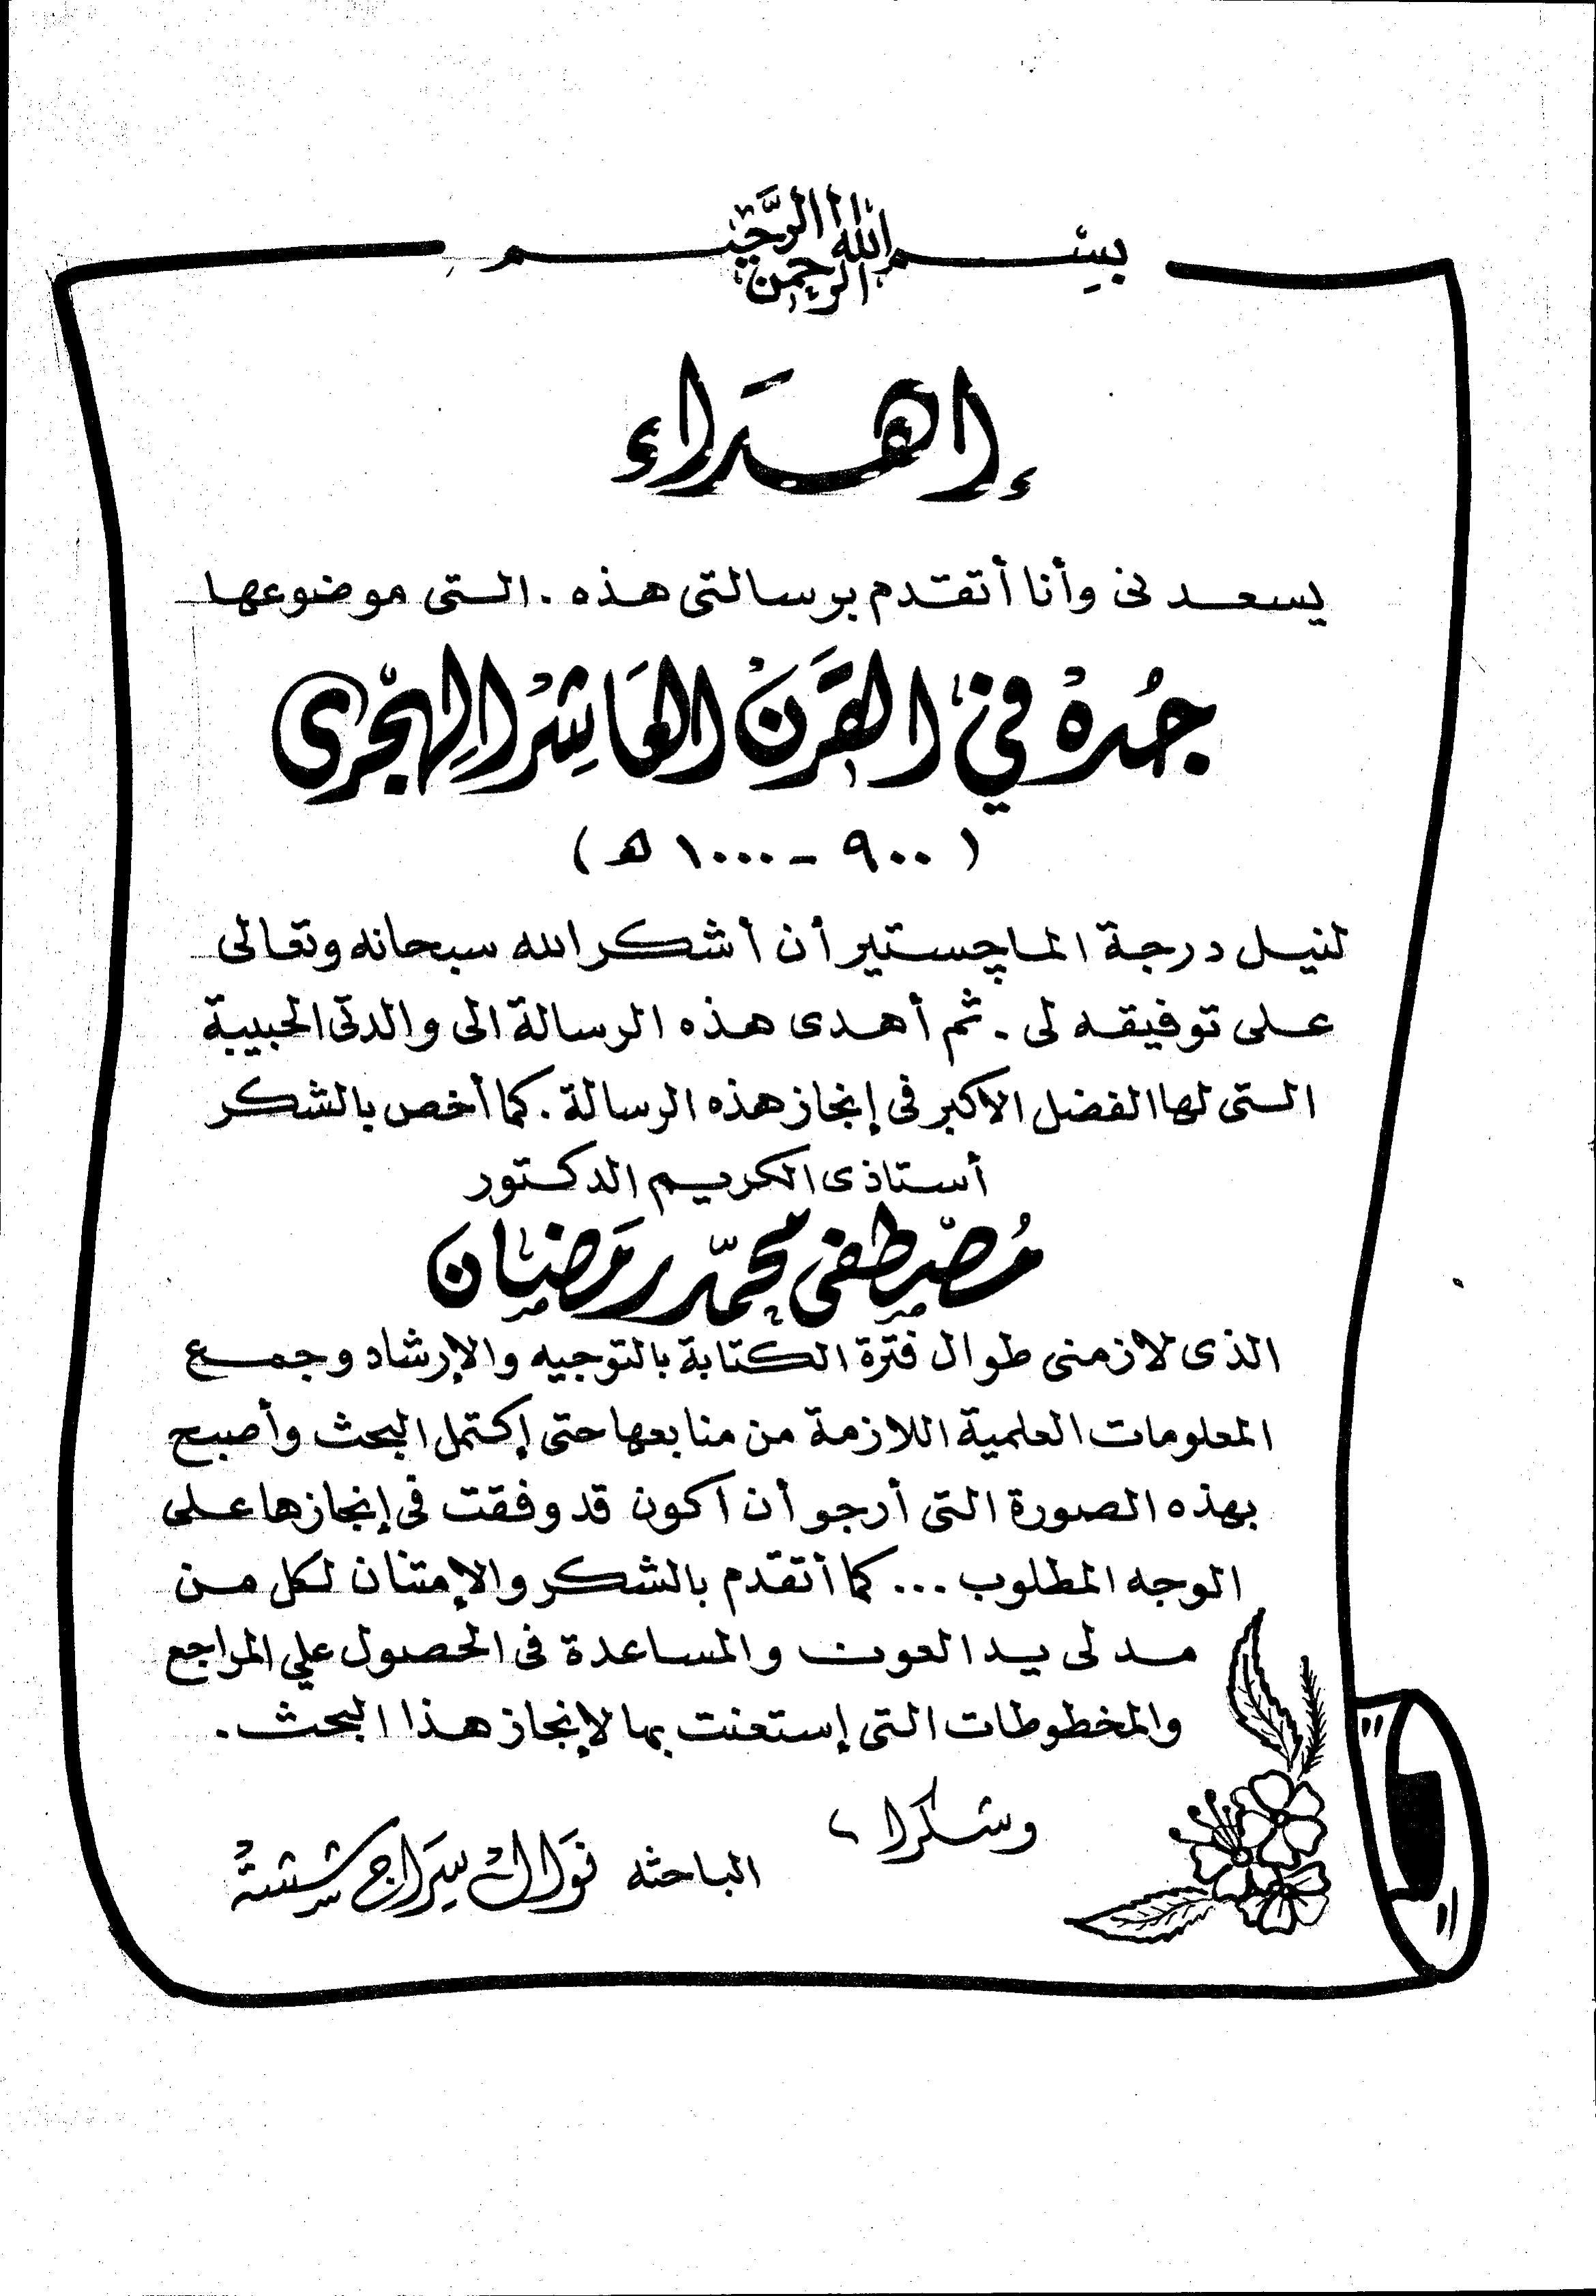 بسم الله الرحمن الرحيم
إهداء
يسعدنى وأنا أتقدم برسالتى هذه . التى موضوعها
جُدة في القرن العاشر الهجرى
( ٩٠٠ - ١٠٠٠ هـ )
لنيل درجة الماچستير أن أشكر الله سبحانه وتعالى
على توفيقه لى . ثم أهدى هذه الرسالة الى والدتى الحبيبة
التى لها الفضل الاكبر فى إنجاز هذه الرسالة . كما أخص بالشكر
أستاذى الكريم الدكتور
مُصطفى محمّد رمضان
الذى لازمنى طوال فترة الكتابة بالتوجيه والإرشاد وجمع
المعلومات العلمية اللازمة من منابعها حتى إكتمل البحث وأصبح
بهذه الصورة التى أرجو أن اكون قد وفقت فى إنجازها على
الوجه المطلوب ... كما أتقدم بالشكر والإمتنان لكل من
مد لى يد العون والمساعدة فى الحصول علي المراجع
والمخطوطات التى إستعنت بها لإنجاز هذا البحث .
وشكرا ،
الباحثه نوال سراج ششة